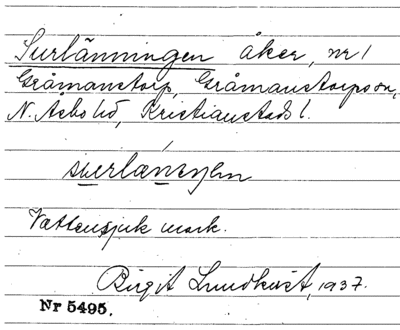 Surlänningen åker, nr 1
Gråmanstorp, Gråmanstorps sn,
N. Åsbo hd, Kristianstads l.
Vattensjuk mark.
Birgit Lundkvist, 1937.
Nr 5495.